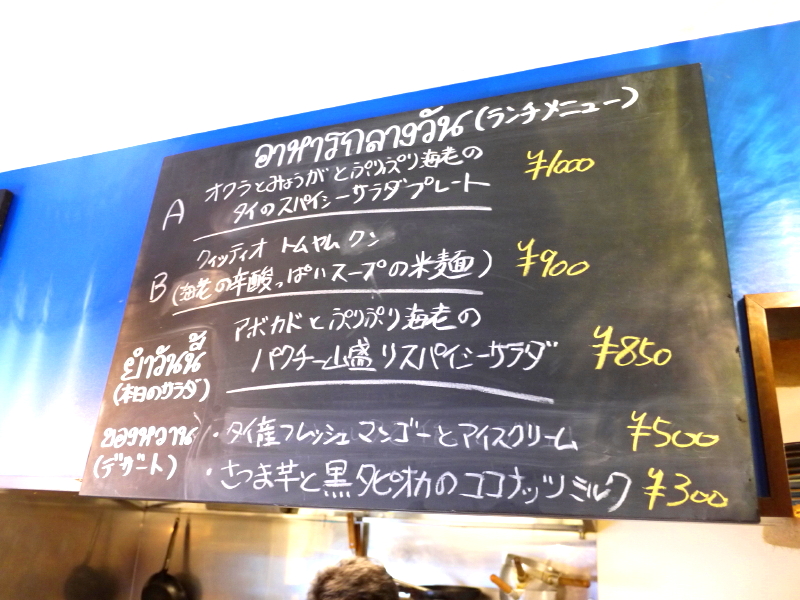 อาหารกลางวัน (ランチメニュー)
A オクラとみょうがとぷりぷり海老の ¥1000
タイのスパイシーサラダプレート
クィッティオ トムヤム クン
B (海老の辛酸っぱいスープの米麺) ¥900
アボカドとぷりぷり海老の ¥850
ยำวันนี้ パクチー山盛りスパイシーサラダ
(本日のサラダ)
ของหวาน ・タイ産フレッシュマンゴーとアイスクリーム ¥500
(デザート) ・さつま芋と黒タピオカのココナッツミルク ¥300